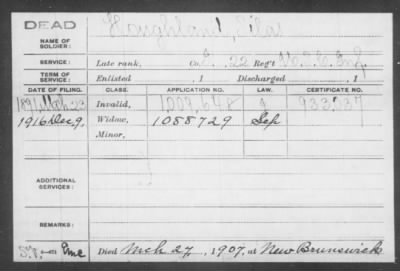 DEAD
NAME OF SOLDIER: Houghland, Silas
SERVICE: Late rank, Co. E. 22 Reg't U.S.C. Inf.
TERM OF SERVICE: Enlisted , 1 Discharged , 1
DATE OF FILING. CLASS. APPLICATION NO. LAW. CERTIFICATE NO.
1891 Mch 23 Invalid, 1,009,648 933,337
1916 Dec 9, Widow, 1088729 Sep
Minor,
ADDITIONAL SERVICES:
REMARKS:
Died Mch 27, 1907, at New Brunswick